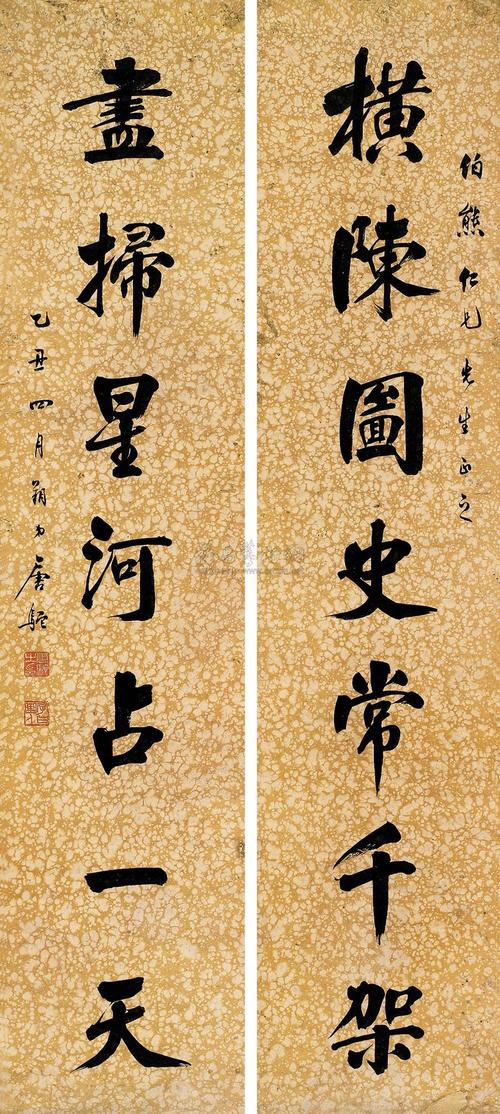 伯熊仁兄先生正之
橫陳圖史常千架
盡掃星河占一天
乙丑四月朔弟唐駝